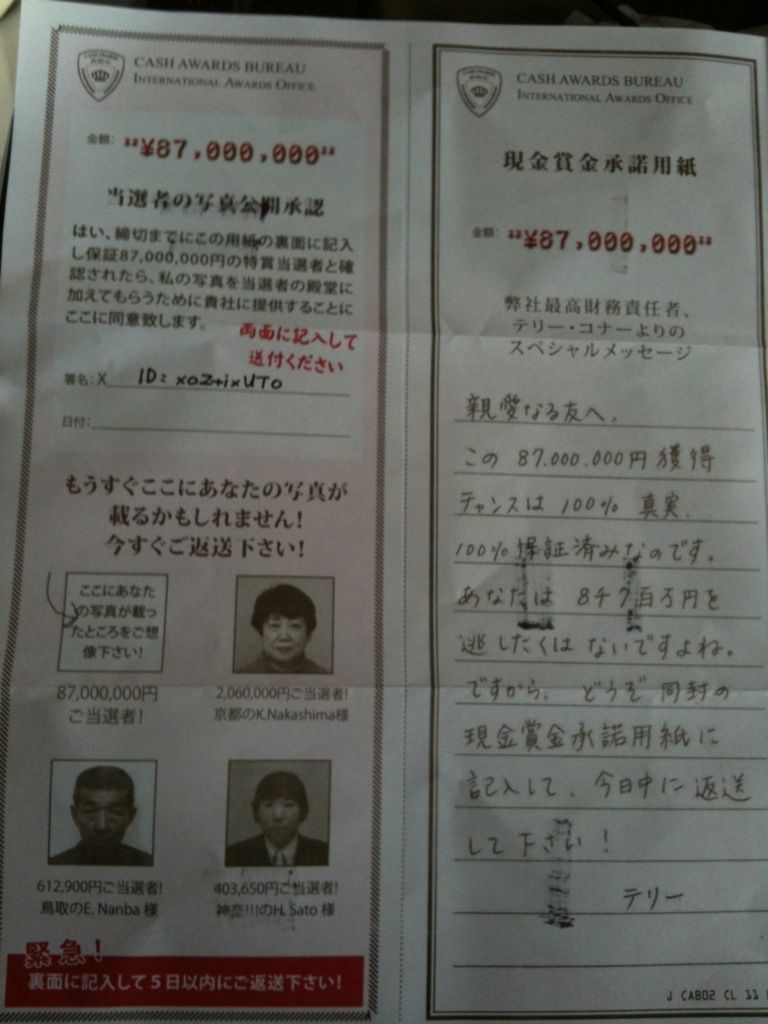 CASH AWARDS BUREAU
INTERNATIONAL AWARDS OFFICE
金額: "¥87,000,000"
当選者の写真公開承認
はい、締切までにこの用紙の裏面に記入
し保証87,000,000円の特賞当選者と確
認されたら、私の写真を当選者の殿堂に
加えてもらうために貴社に提供することに
ここに同意致します。
両面に記入して
送付ください
署名: X ID: xoZ+ixUTO
日付:
もうすぐここにあなたの写真が
載るかもしれません!
今すぐご返送下さい!
ここにあなた
の写真が載っ
たところをご想
像下さい!
87,000,000円
ご当選者!
2,060,000円ご当選者!
京都のK.Nakashima様
612,900円ご当選者!
鳥取のE. Nanba 様
403,650円ご当選者!
神奈川のH. Sato 様
緊急!
裏面に記入して5日以内にご返送下さい!
CASH AWARDS BUREAU
INTERNATIONAL AWARDS OFFICE
現金賞金承諾用紙
金額: "¥87,000,000"
弊社最高財務責任者、
テリー・コナーよりの
スペシャルメッセージ
親愛なる友へ、
この 87.000.000円 獲得
チャンスは 100% 真実、
100% 保証済みなのです。
あなたは 847百万円を
逃したくは ないですよね。
ですから、どうぞ 同封の
現金賞金承諾用紙に
記入して、今日中に 返送
して 下さい!
テリー
J CAB02 CL 11